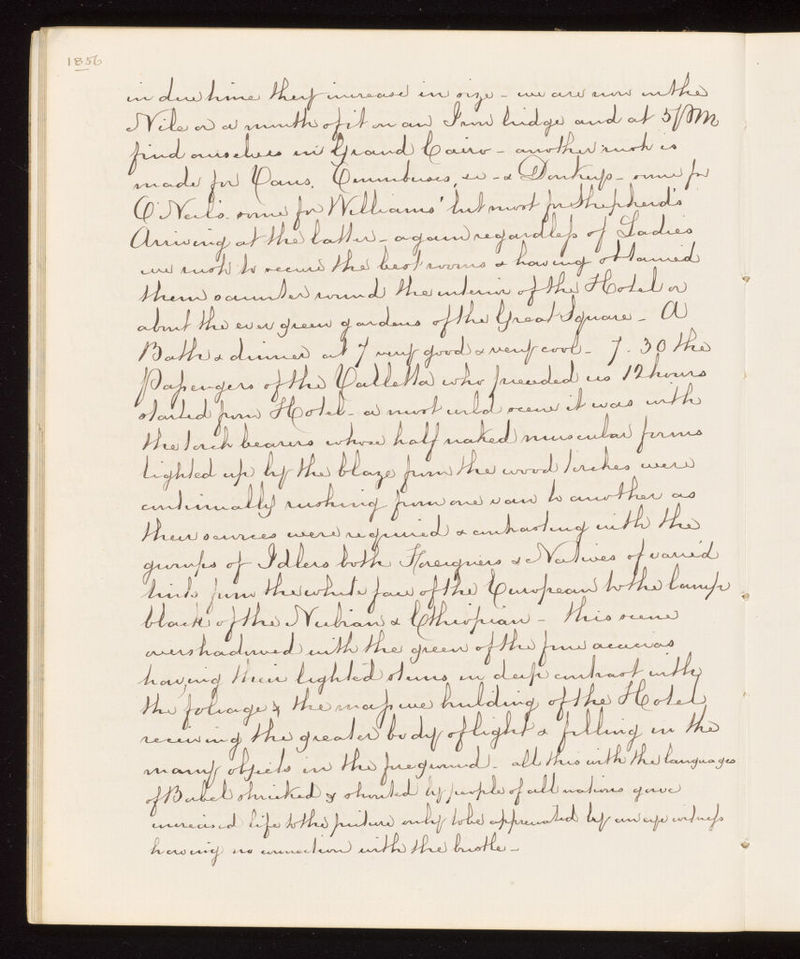 1856
in due time they increase in size - we are now in the
Nile or a mouth of it on an Iron bridge and at 5 PM
find ourselves in Grand Cairo - another rush is
made for Vans, Omnibuses, &c - & Donkeys - some for
O'Neil's. some for Williams' but most for Shepherd's
Arriving at the latter - again regardless of Ladies
we rush to secure the best rooms & having obtained
them saunter round the interior of the Hotel or
about the ever green gardens of the Great Square - A
Bath & dinner at 7 very good & very cool - 7.30 the
Passengers of the Valletta who preceded us 12 hours
started from Hotel - a most wild scene it was with
the torch bearers whose half naked muscular forms
lighted up by the blaze from the wood torches were
continually rushing from one van to another as
their services were required & contrasting with the
groups of Idlers both Foreigners & Natives of varied
tints from the white face of the European to the lamp
black of the Nubian & Ethiopian - this scene
overshadowed with the green of the fine acacias
having their lighted stems in deep contrast with
the foliage & the massive building of the Hotel
receiving the greater body of light & filling in the
many objects in the foreground - all this with the languages
of Babel shrieked & shouted by people of all nations gave
increased life to the picture only to be appreciated by an eye witness
having no connection with the bustle -